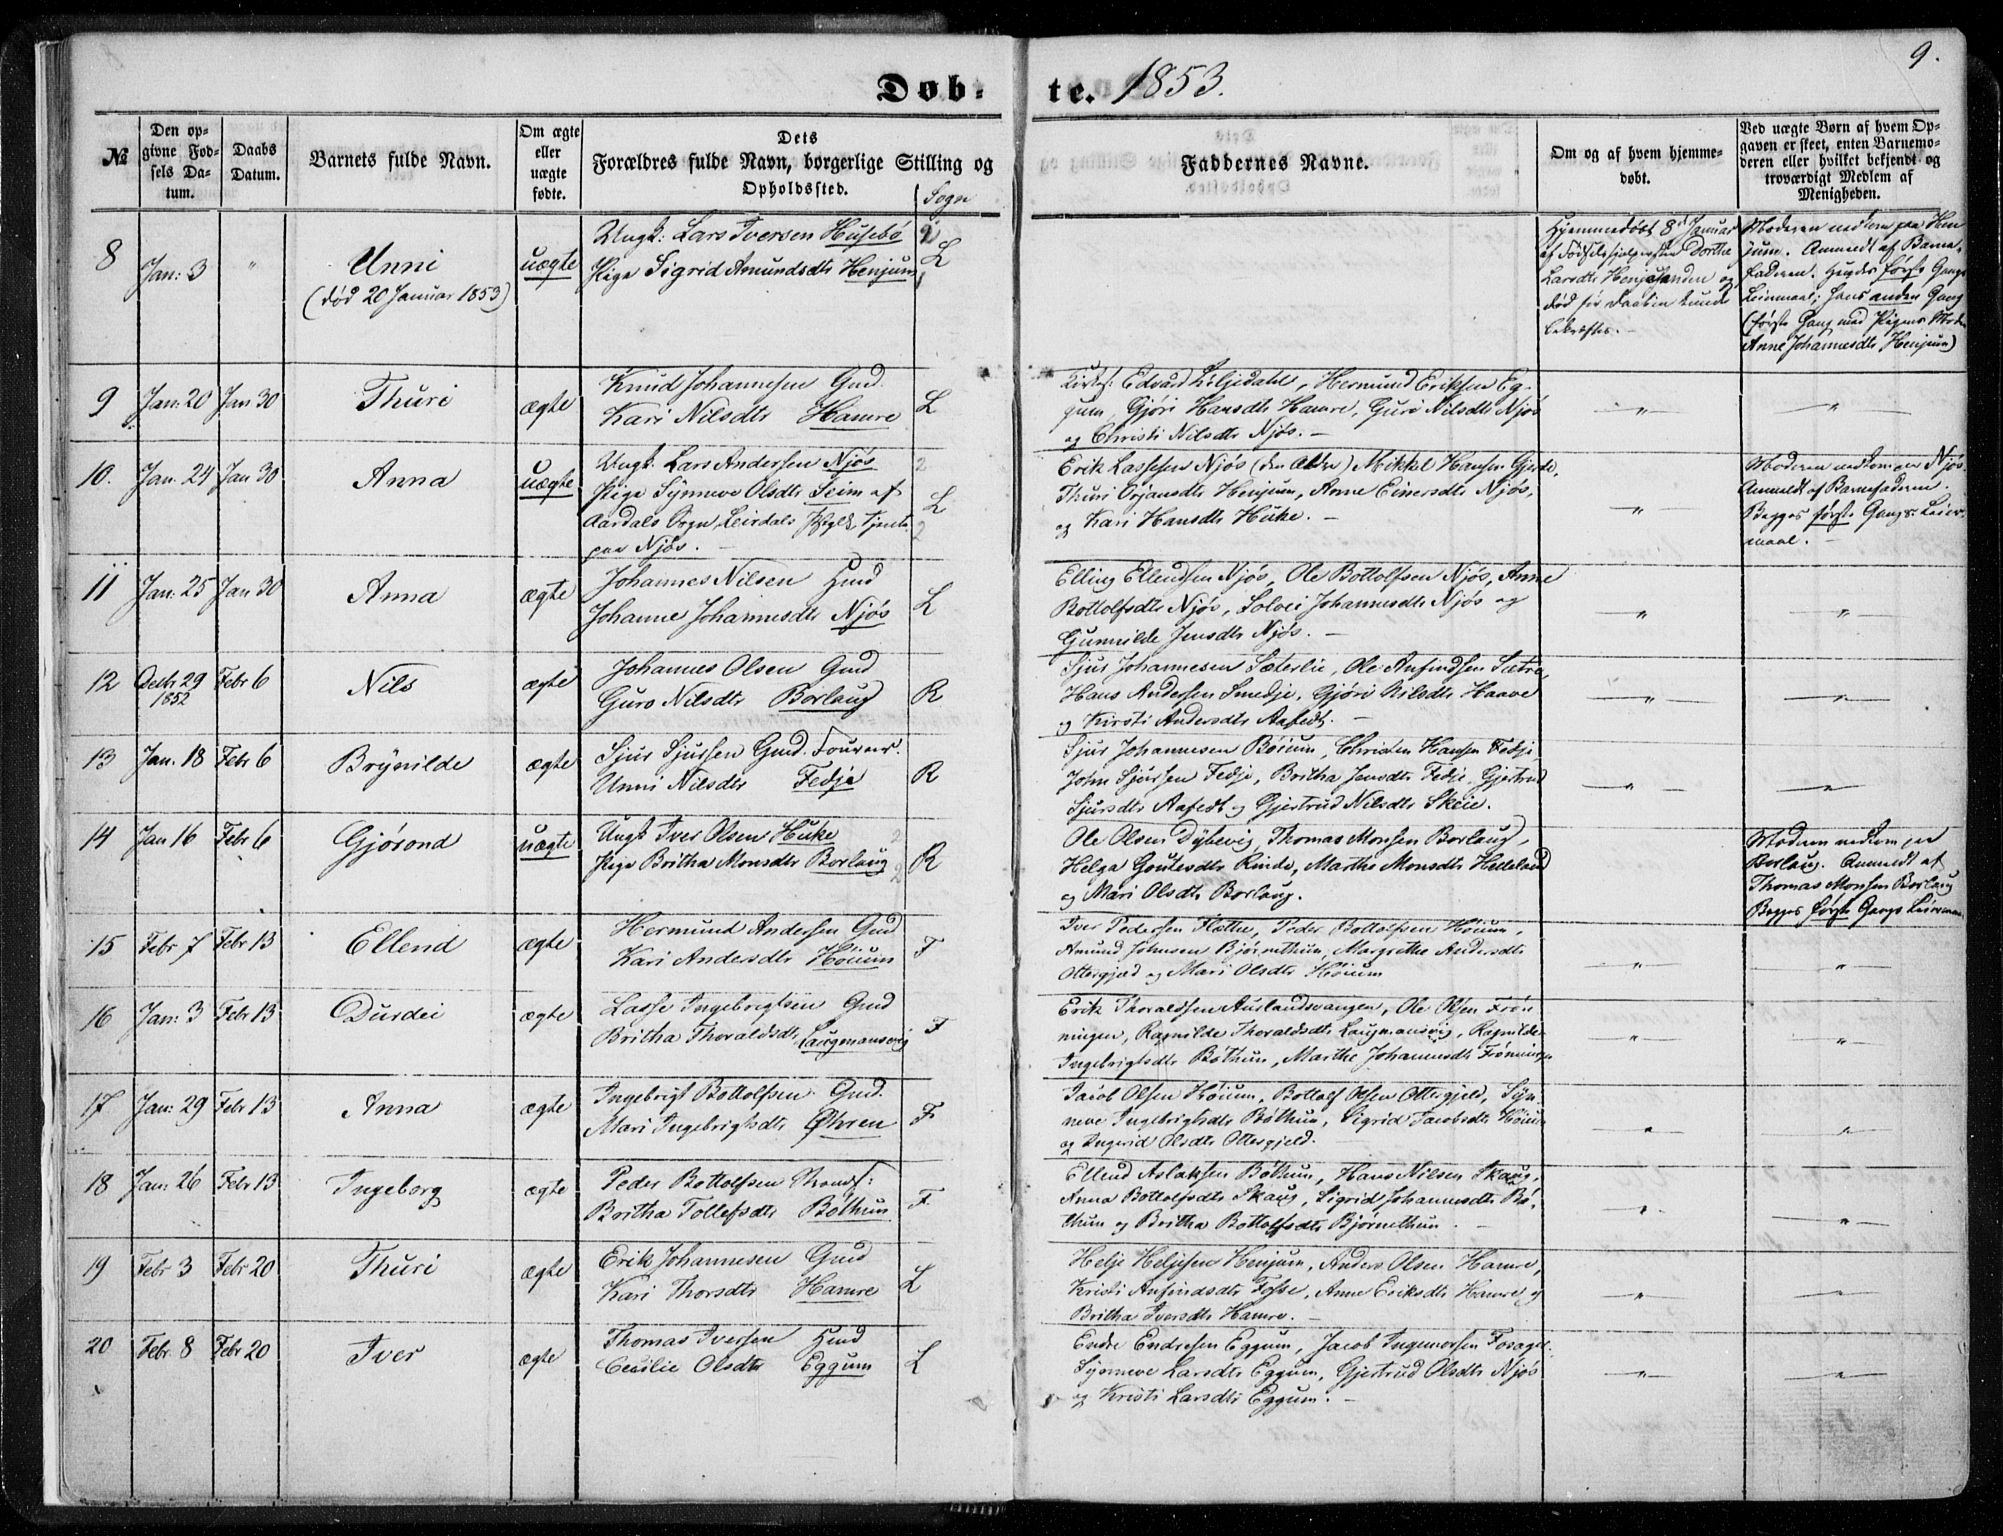 9.
Døb- te. 1853.
№
Den op-
givne Fød-
sels Da-
tum.
Daabs
Datum.
Barnets fulde Navn.
Om ægte
eller
uægte
fødte.
Dets
Forældres fulde Navn, borgerlige Stilling og
Opholdssted.
Sogn
Faddernes Navne.
Om og af hvem hjemme-
døbt.
Ved uægte Børn af hvem Op-
gaven er skeet, enten Barnemo-
deren eller hvilket bekjendt og
troværdigt Medlem af
Menigheden.
8
Jan: 3
"
Unni
(død 20 Januar 1853)
uægte
Ungk: Lars Iversen Husebø 2
Pige Sigrid Amundsdtr Henjum 1
L
Hjemmedøbt 8d Januar
af Fødselshjælpersken Dorthe
Larsdtr Henjasanden og
død før Daaben kunde
bekræftes.-
Moderen nedkom paa Hen
jum. Anmeldt af Barne-
faderen. Hendes første Gangs
Leiermaal; hans anden Gang
(første Gang med Pigens Moder
Anne Johannesdtr Henjum)
9
Jan: 20
Jan 30
Thuri
ægte
Knud Johannesen Gmd.
Kari Nilsdtr Hamre
L
Kirks: Edvard Liljedahl, Hermund Eriksen Eg-
gum, Gjøri Hansdtr Hamre, Guro Nilsdtr Njøs
og Christi Nilsdtr Njøs.-
"
"
10.
Jan. 24
Jan 30
Anna
uægte
Ungk: Lars Andersen Njøs 2
Pige Synneve Olsdtr Seim af
Aardals Sogn, Leirdals Pgld. Tjente 2
paa Njøs.-
L
Erik Lassesen Njøs (den Ældre) Mikkel Hansen Gjerde,
Thuri Orjansdtr Henjum, Anne Einersdtr Njøs,
og Kari Hansdtr Huke.-
"
Moderen nedkom paa Njøs.
Anmeldt af Barnefaderen.
Begges første Gangs Leier-
maal.-
11
Jan: 25
Jan 30
Anna
ægte
Johannes Nilsen Hmd
Johanne Johannesdtr Njøs
L
Elling Ellendsen Njøs, Ole Bottolfsen Njøs, Anne
Bottolfsdtr Njøs, Solvei Johannesdtr Njøs og
Gunnilde Jensdtr Njøs.-
"
"
12
Decbr 29
1852
Febr 6
Nils
ægte
Johannes Olsen Gmd
Guro Nilsdtr Borlaug
R
Sjur Johannesen Sæterlie, Ole Anfindsen Sætre,
Hans Andersen Smedje, Gjøri Nilsdtr Haave
og Kirsti Andersdtr Aafedt.-
"
"
13
Jan. 18
Febr 6
Brynilde
ægte
Sjur Sjursen Gmd. Fourer.
Unni Nilsdtr Fedje
R
Sjur Johannesen Bøium, Christen Hansen Fedje,
John Sjursen Fedje, Britha Jensdtr Fedje, Gjertrud
Sjursdtr Aafedt og Gjertrud Nilsdtr Skeie.
"
"
14
Jan 16
Febr 6
Gjørond
uægte
Ungk Iver Olsen Huke 2
Pige Britha Monsdtr Borlaug 2
R
Ole Olsen Dybevig, Thomas Monsen Borlaug,
Helga Goutesdtr Rinde, Marthe Monsdtr Hedeland
og Mari Olsdtr Borlaug.
Moderen nedkom paa
Borlaug. Anmeldt af
Thomas Monsen Borlaug
Begges første Gangs Leierm:
15
Febr 7
Febr 13
Ellend
ægte
Hermund Andersen Gmd
Kari Andersdtr Høium
F
Iver Pedersen Flethe, Peder Bottolfsen Høium,
Amund Johnsen Bjørnethun, Margrethe Andersdtr
Ottergjæld og Mari Olsdtr Høium
"
"
16
Jan: 3
Febr 13
Durdei
ægte
Lasse Ingebrigtsen Gmd
Britha Thoraldsdtr Laugmansvig
F
Erik Thoraldsen Aurlandsvangen, Ole Olsen Frøn
ningen, Ragnilde Thoraldsdtr Laugmansvig, Ragnilde
Ingebrigtsdtr Bøthun, Marthe Johannesdtr Frønningen
"
"
17
Jan: 29
Febr 13
Anna
ægte
Ingebrigt Bottolfsen Gmd.
Mari Ingebrigtsdtr Øhren
F
Jacob Olsen Høium, Bottolf Olsen Ottergjeld, Syn-
neve Ingebrigtsdtr Bøthun, Sigrid Jacobsdtr Høium
og Ingerid Olsdtr Ottergjeld.
"
"
18
Jan: 26
Febr 13
Ingeborg
ægte
Peder Bottolfsen Strands:
Britha Tollefsdtr Bøthun
F
Ellend Aslaksen Bøthun, Hans Nilsen Skaug,
Anna Bottolfsdtr Skaug, Sigrid Johannesdtr Bø-
thun og Britha Bottolfsdtr Bjørnethun.-
"
"
19
Febr 3
Febr 20
Thuri
ægte
Erik Johannesen Gmd
Kari Thorsdtr Hamre
L
Helje Heljesen Henjum, Anders Olsen Hamre,
Kristi Anfindsdtr Fosse, Anne Eriksdtr Hamre og
Britha Iversdtr Hamre.-
"
"
20
Febr. 8
Febr 20
Iver
ægte
Thomas Iversen Hmd
Cecilie Olsdtr Eggum
L
Endre Endresen Eggum, Jacob Ingemorsen
Synneve Larsdtr Eggum, Gjertrud Olsdtr Njøs
og Kristi Larsdtr Eggum.-
"
"